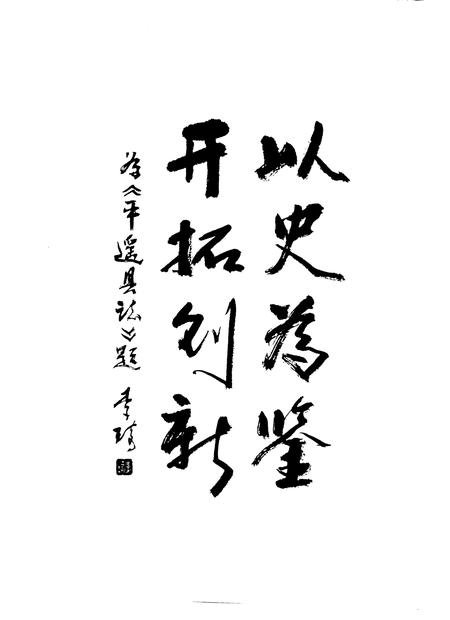 以史為鉴
开拓创新
为《平遥县志》题 李琦